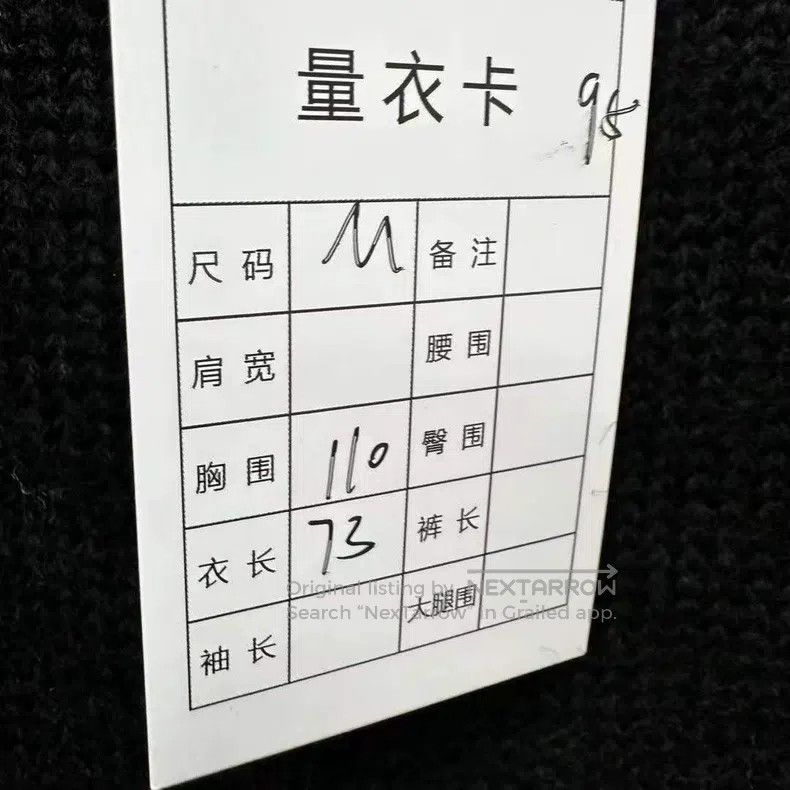 量衣卡 98
尺码 M 备注
肩宽 腰围
胸围 110 臀围
衣长 73 裤长
袖长 大腿围
Original listing by NEXTARROW
Search “NexTarrow” in Grailed app.